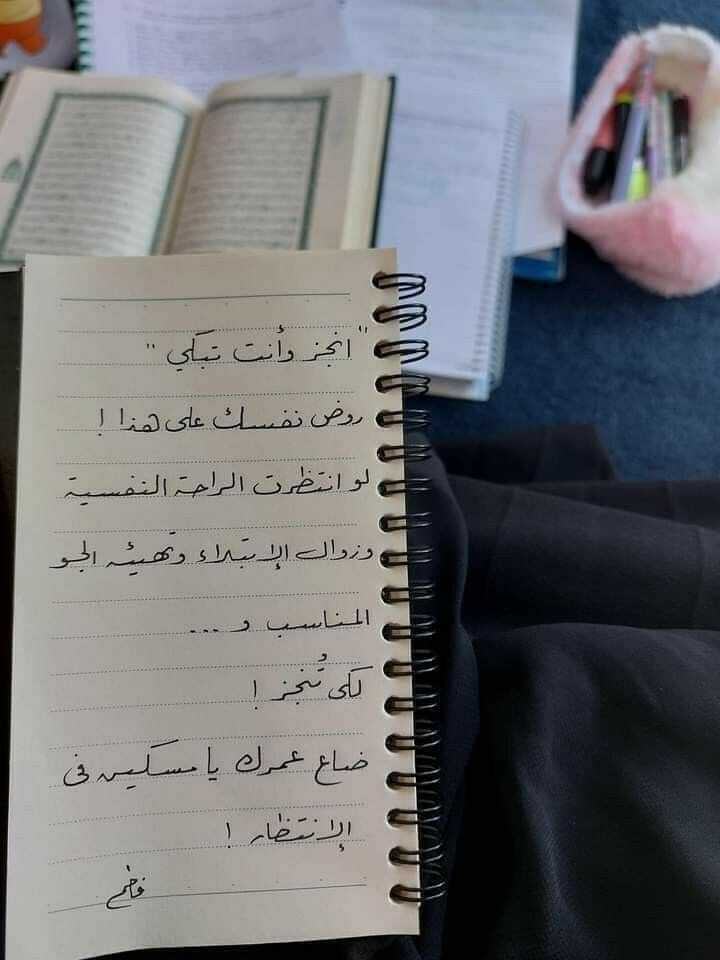 " انجز وأنت تبكي "
روض نفسك على هذا !
لو انتظرت الراحة النفسية
وزوال الإبتلاء وتهيئه الجو
المناسب و ...
لكى تُنجز !
ضاع عمرك يا مسكين فى
الإنتظار !